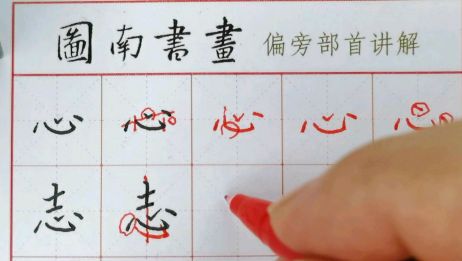 圖南書畫 偏旁部首讲解
心 心 心 心 心
志 志